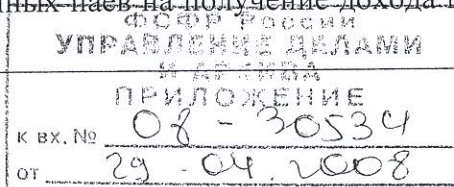 нных паев на получение дохода
ФСФР России
УПРАВЛЕНИЕ ДЕЛАМИ
И АРХИВА
ПРИЛОЖЕНИЕ
К ВХ. № 08-30534
ОТ 29.04.2008